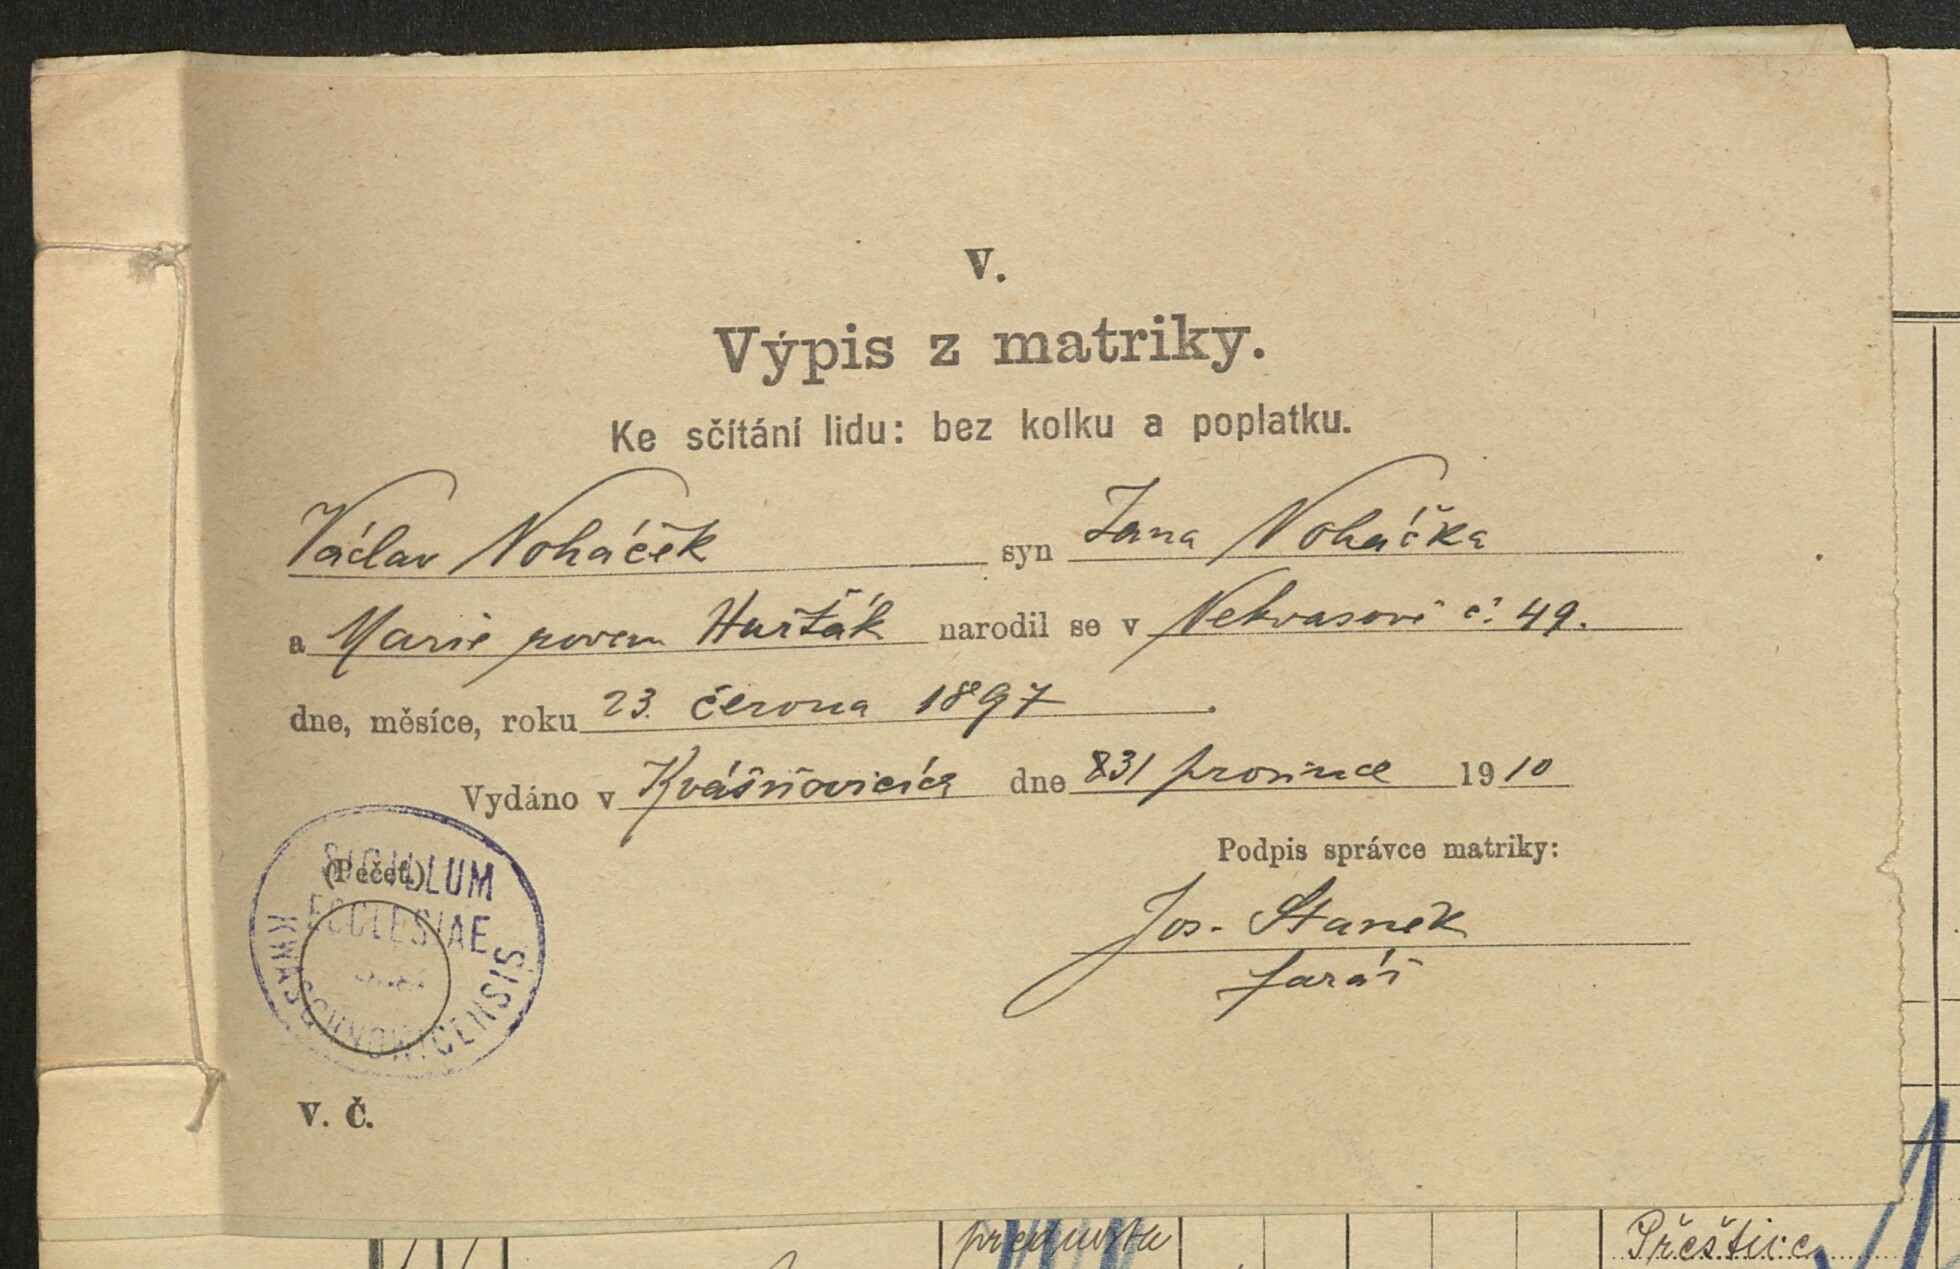 V.
Výpis z matriky.
Ke sčítání lidu: bez kolku a poplatku.
Václav Noháček syn Jana Noháčka
a Marie rozen Huršák narodil se v Nekvasově č. 49.
dne, měsíce, roku 23. června 1897.
Vydáno v Kvášňovicích dne 31 prosince 1910
Podpis správce matriky:
(Pečeť.)
SIGILLUM
ECCLESIAE
KWASCHNOWICENSIS
Jos. Staněk
farář
V. Č.
Přeštice